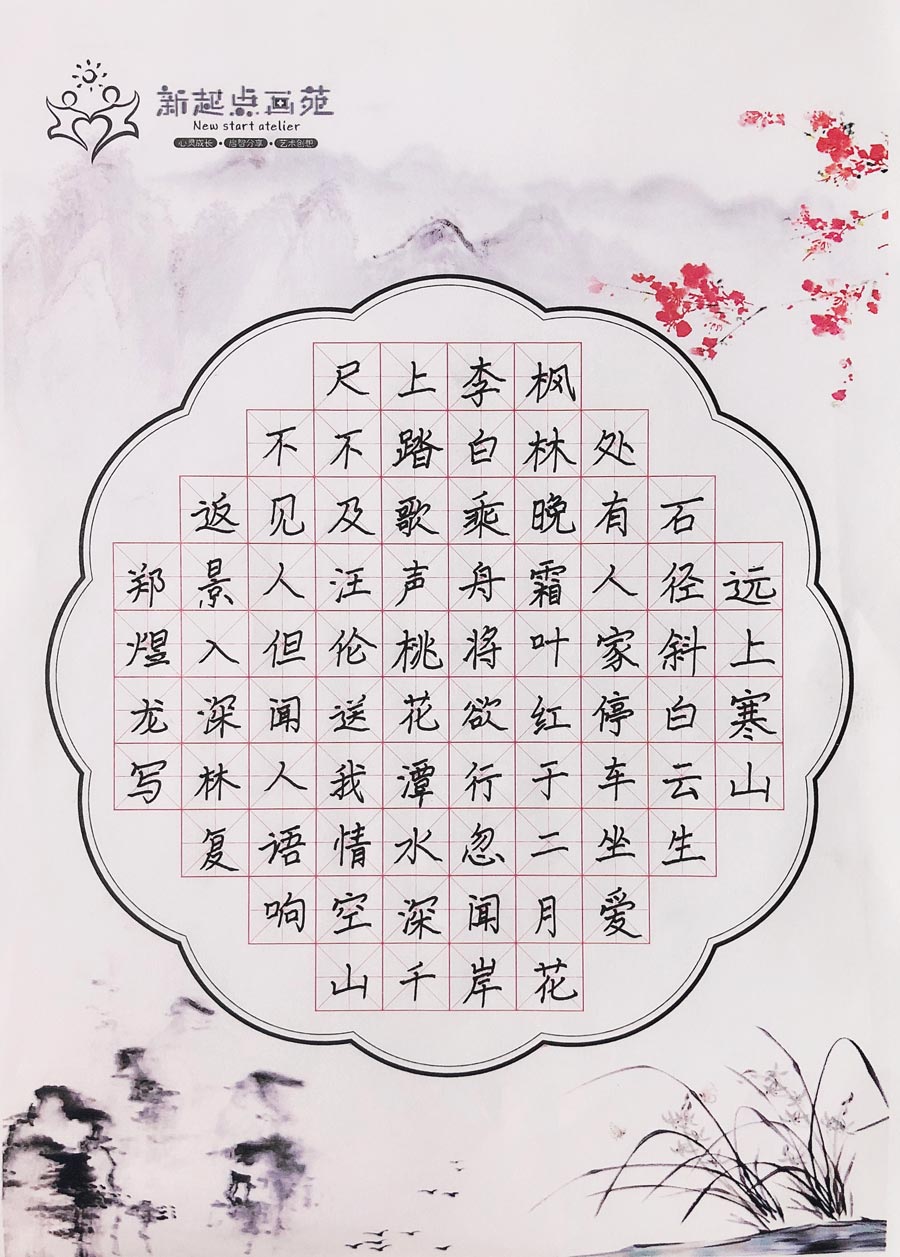 新起点画苑
New start atelier
心灵成长•启智分享•艺术创想
远上寒山
石径斜白云生
处有人家停车坐爱
枫林晚霜叶红于二月花
李白乘舟将欲行忽闻岸
上踏歌声桃花潭水深千
尺不及汪伦送我情空山
不见人但闻人语响
返景入深林复
郑煜龙写